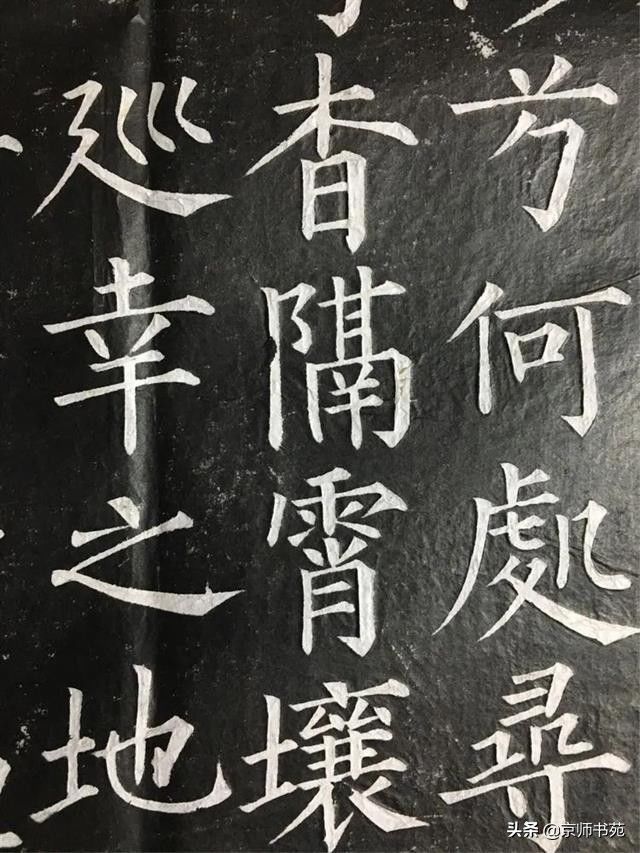 兮何處尋
杳隔霄壤
巡幸之地
头条 @京师书苑